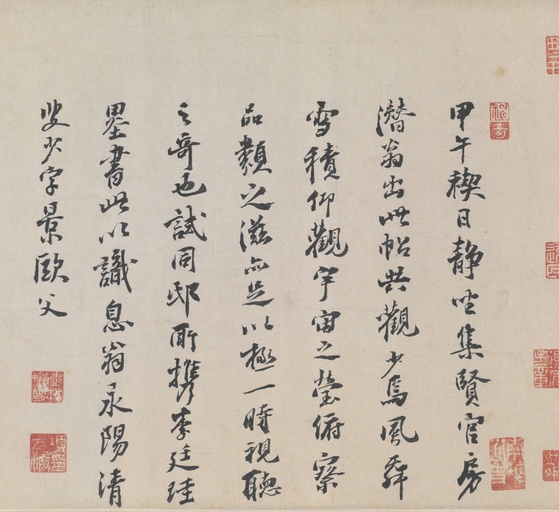 甲午禊日静坐集賢官房
潛翁出此帖共觀少焉風舞
雪積仰觀宇宙之瑩俯察
品類之滋亦足以極一時視聽
之奇也試同邸所携李廷珪
墨書此以識息翁永陽清
叟少字景歐父